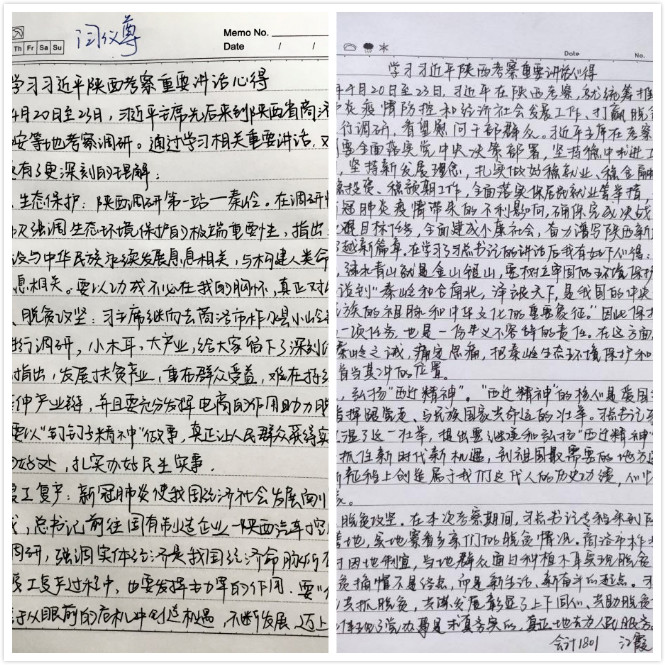 Memo No.
Th Fr Sa Su
Date / /
闫仪尊
学习习近平陕西考察重要讲话心得
4月20日至23日，习近平主席先后来到陕西省商洛
安等地考察调研。通过学习相关重要讲话，对
有了更深刻的理解：
生态保护：陕西调研第一站—秦岭。在调研
次强调生态环境保护的极端重要性，指出
设与中华民族永续发展息息相关，与构建人类命
息相关。要以功成不必在我的胸怀，真正对
脱贫攻坚：习主席继而去商洛市柞水县小山
进行调研，小木耳，大产业，给大家留下了深刻
指出，发展扶贫产业，重在群众受益，难在持
延伸产业链，并且要充分发挥电商的作用助力
要以"钉钉子精神"做事，真正让人民群众获得实
好处，扎实办好民生实事。
复工复产：新冠肺炎使我国经济社会发展面
总书记前往国有制造企业—陕西汽车控
调研，强调实体经济是我国经济命脉所在
复工复产过程中，也要发挥主力军的作用。要"
于从眼前的危机中创造机遇，不断发展，迈上
Date No.
学习习近平陕西考察重要讲话心得
4月20日至23日，习近平在陕西考察，就统筹推
炎疫情防控和经济社会发展工作、打赢脱
行调研，看望慰问干部群众。习近平主席在考察
要全面落实党中央决策部署，坚持稳中求进工
坚持新发展理念，扎实做好稳就业、稳金融
稳投资、稳预期工作，全面落实保居民就业等举措
冠肺炎疫情带来的不利影响，确保完成决战
目标任务，全面建成小康社会，奋力谱写陕西新
越新篇章。在学习了习总书记的讲话后我有如下心得：
绿水青山就是金山银山，要树立牢固的环境保护
谈到"秦岭和合南北，泽被天下，是我国的中央
民族的祖脉和中华文化的重要象征。"因此保
一项任务，也是一份义不容辞的责任。在这方面
秦岭之诫，痛定思痛，把秦岭生态环境保护和
当其冲的位置。
弘扬"西迁精神"。"西迁精神"的核心是爱国
指挥跟党走、与民族国家共命运的壮举。习总书记
了这一壮举，提出要继续和弘扬"西迁精神"
抓住新时代新机遇，到祖国最需要的地方
新征程上创造属于我们这代人的历史功绩，
脱贫攻坚。在本次考察期间，习总书记专程来到
营地，实地察看乡亲们的脱贫情况。商洛市柞水
因地制宜，当地群众通过种植木耳实现脱贫
贫摘帽不是终点，而是新生活、新奋斗的起点。
去抓脱贫，去谋发展彰显了上下同心，共助脱贫
事实了党办事是求真务实的，真正地去为人民服务
会计1801 江霞